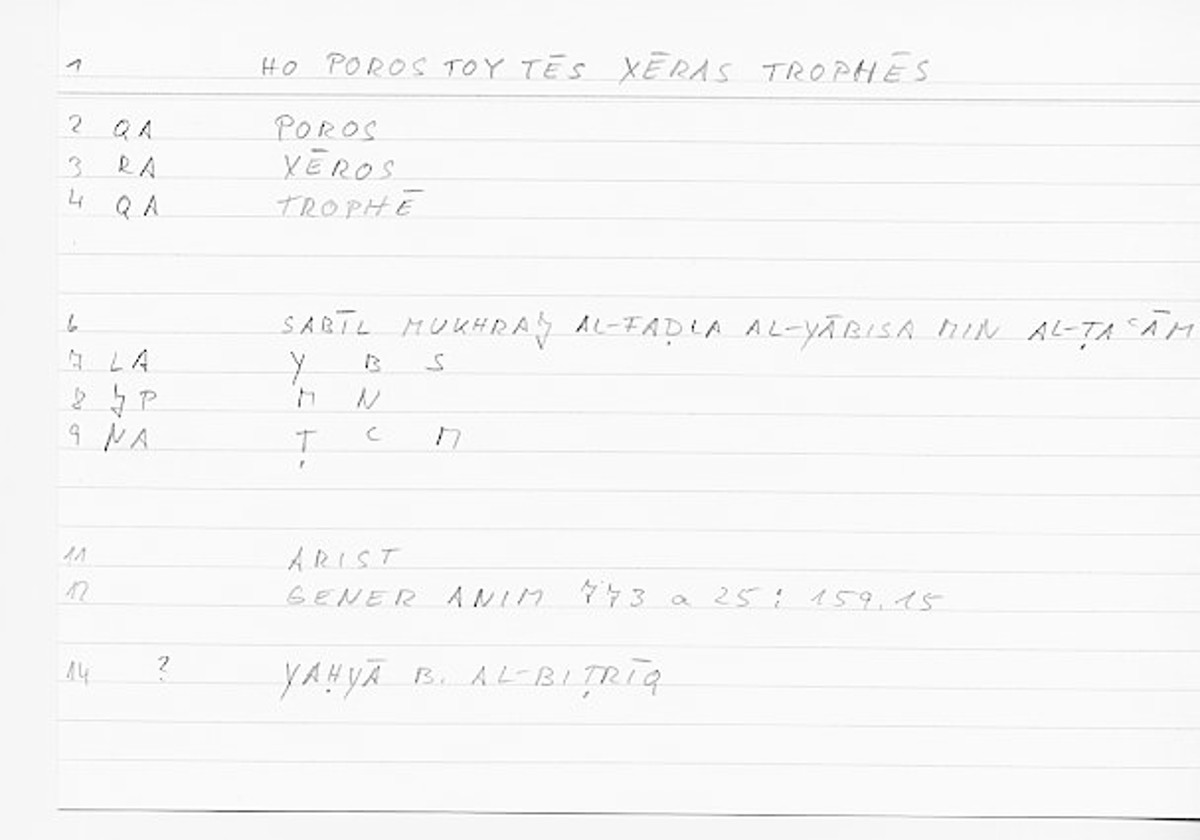 1 HO POROS TOY TĒS XĒRAS TROPHĒS
2 QA POROS
3 RA XĒROS
4 QA TROPHĒ
6 SABĪL MUKHRAJ AL-FAḌLA AL-YĀBISA MIN AL-ṬAʿĀM
7 LA Y B S
8 JP M N
9 NA Ṭ ʿ M
11 ARIST
12 GENER ANIM 773 a 25 : 159.15
14 ? YAḤYĀ B. AL-BIṬRĪQ